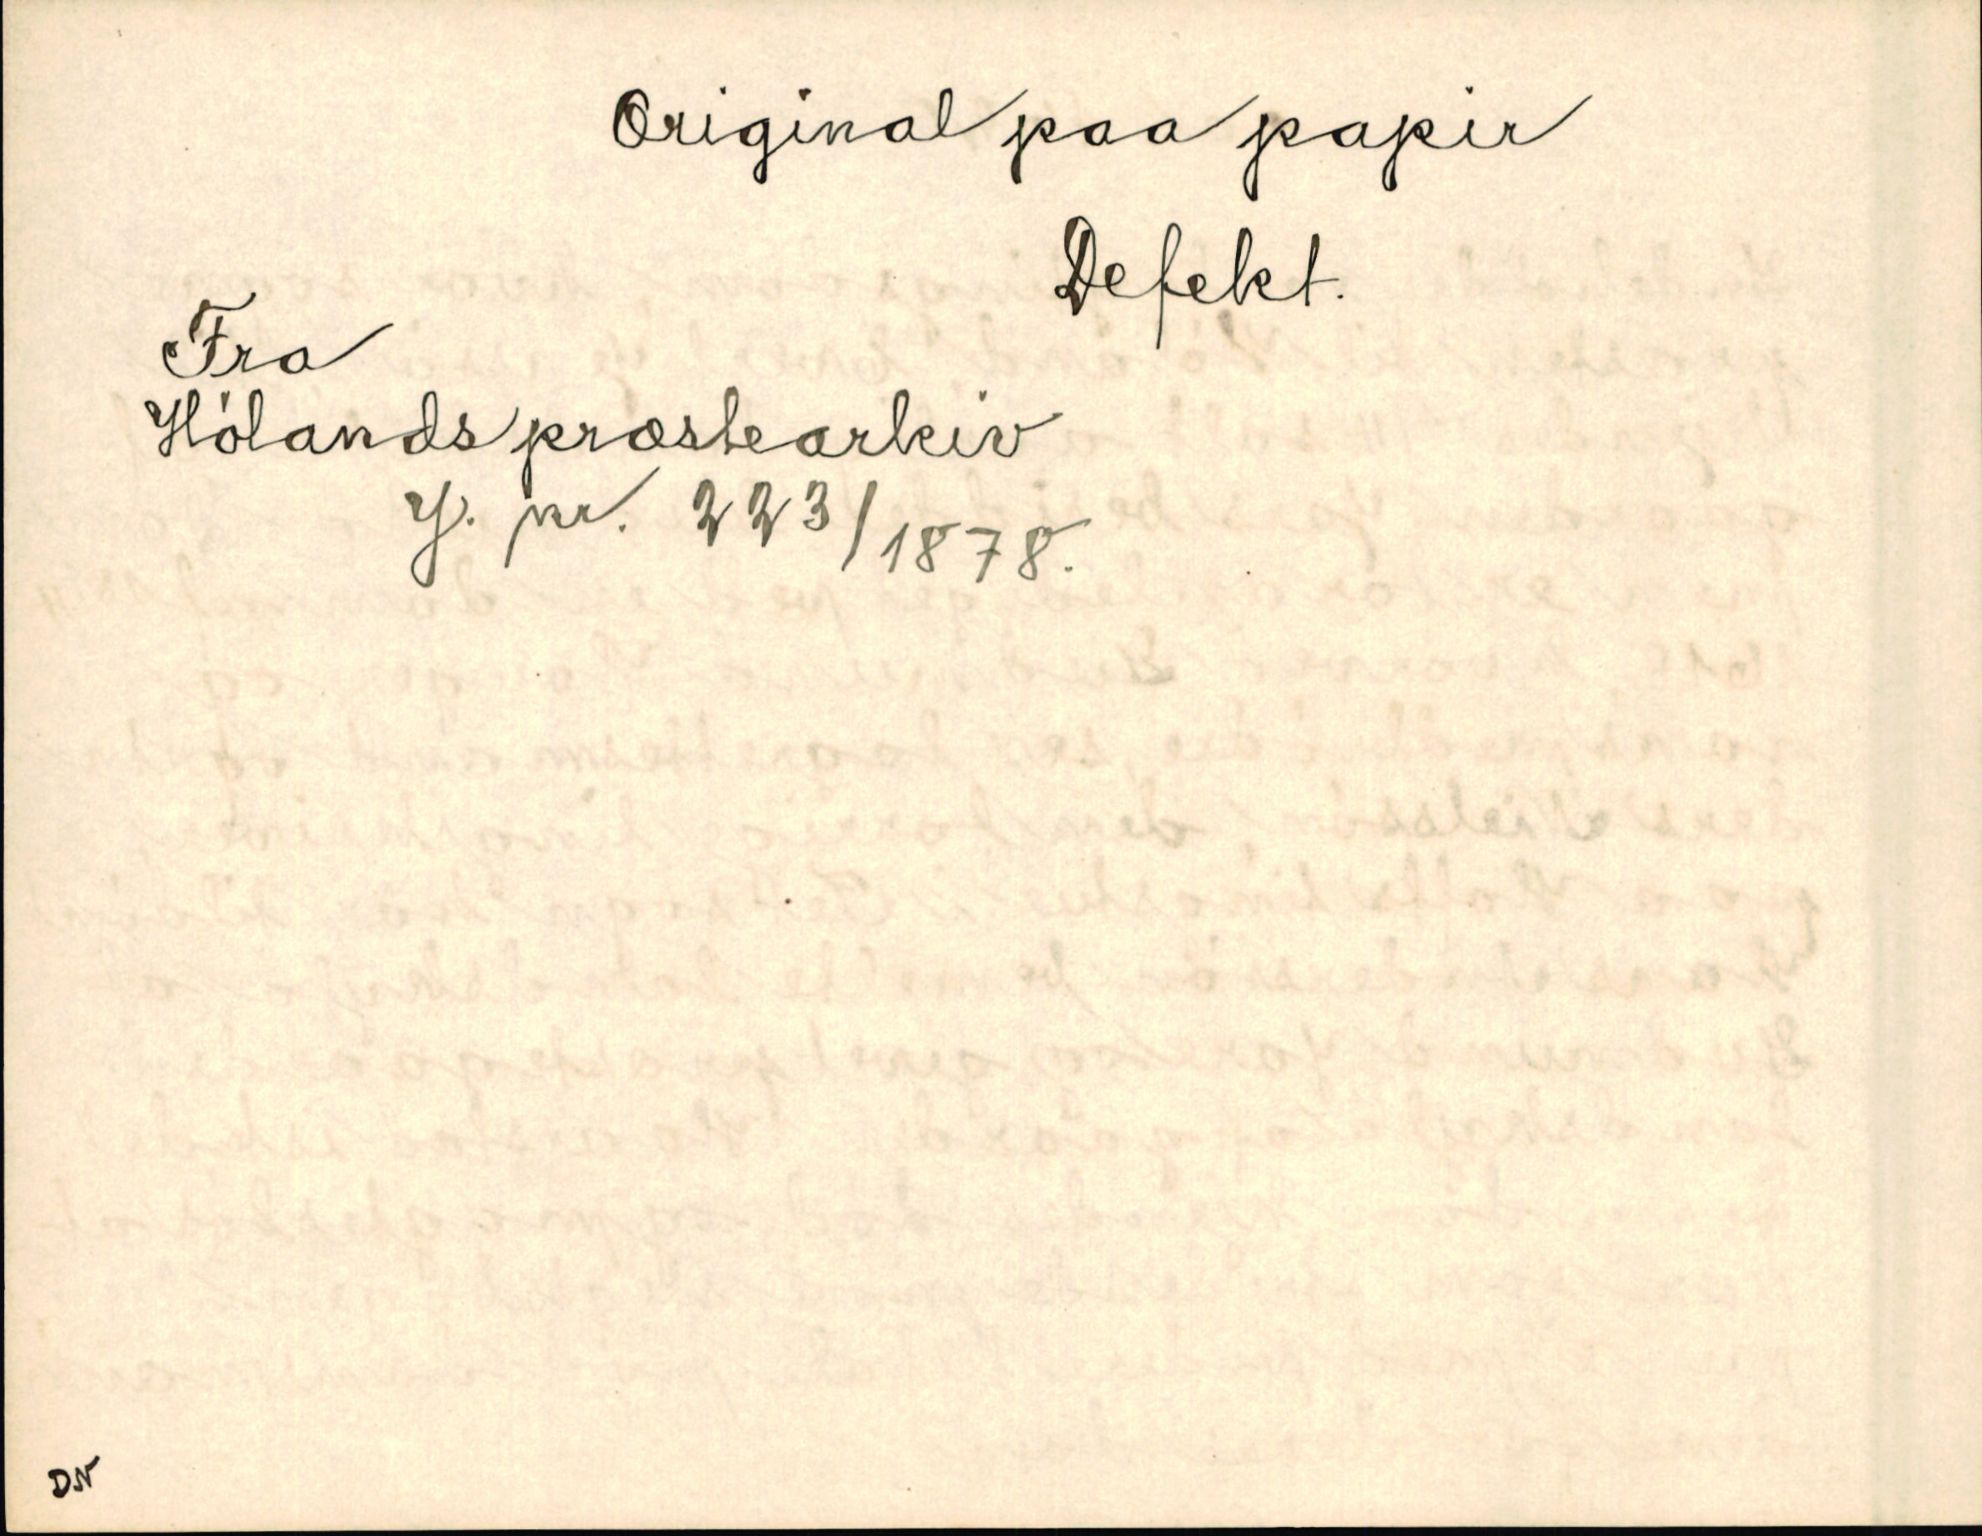 Original paa papir
Defekt.
Fra
Hólands præstearkiv
J. nr. 223/1878.
DN